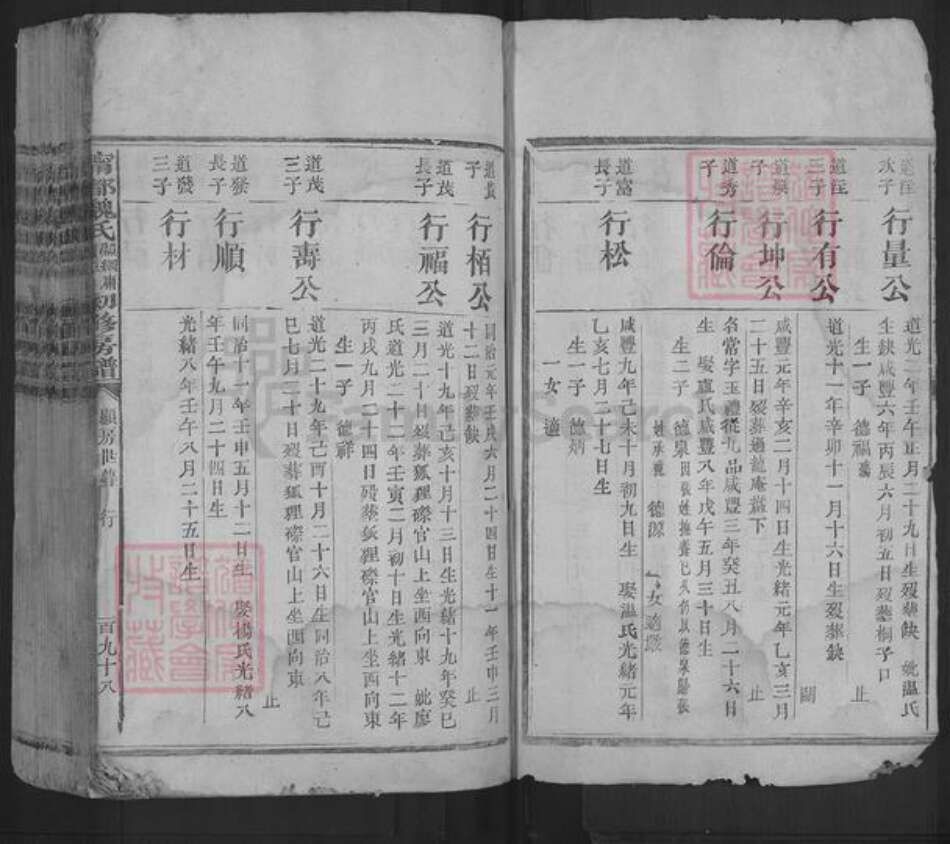 道
次子
行量公
道光二年壬午正月二十九日生歿葬缺 妣溫氏
生缺咸豐六年丙辰六月初五日歿葬桐子口
生一子 德福 止
道
三子
行有公
道光十一年辛卯十一月十六日生歿葬缺
道
子
行坤公
咸豐元年辛亥二月十四日生光緒元年乙亥三月
二十五日歿葬通龍庵下
止
道秀
子
行倫
名常字玉禮從九品咸豐三年癸丑八月二十六日
生 娶盧氏咸豐八年戊午五月三十日生
生二子 德泉 德源
女 適
道富
長子
行松
咸豐九年己未十月初九日生 娶溫氏光緒元年
乙亥七月二十七日生
生一子 德炳
一女 適
道
子
行栢公
同治元年壬戌六月二十四日生十一年壬申三月
十二日歿葬缺
止
道茂
長子
行福公
道光十九年己亥十月十三日生光緒十九年癸巳
三月二十日歿葬狐狸磜官山上坐西向東 妣廖
氏道光二十二年壬寅二月初十日生光緒十二年
丙戌九月二十四日歿葬狐狸磜官山上坐西向東
生一子 德祥
道茂
三子
行壽公
道光二十九年己酉十月二十六日生同治八年己
巳七月二十日歿葬狐狸磜官山上坐西向東
止
道發
長子
行順
同治十一年壬申五月十二日生 娶楊氏光緒八
年壬午九月二十四日生
道發
三子
行材
光緒八年壬午八月二十五日生
甯都魏氏 初修房譜
顯房世譜
行
一百九十八